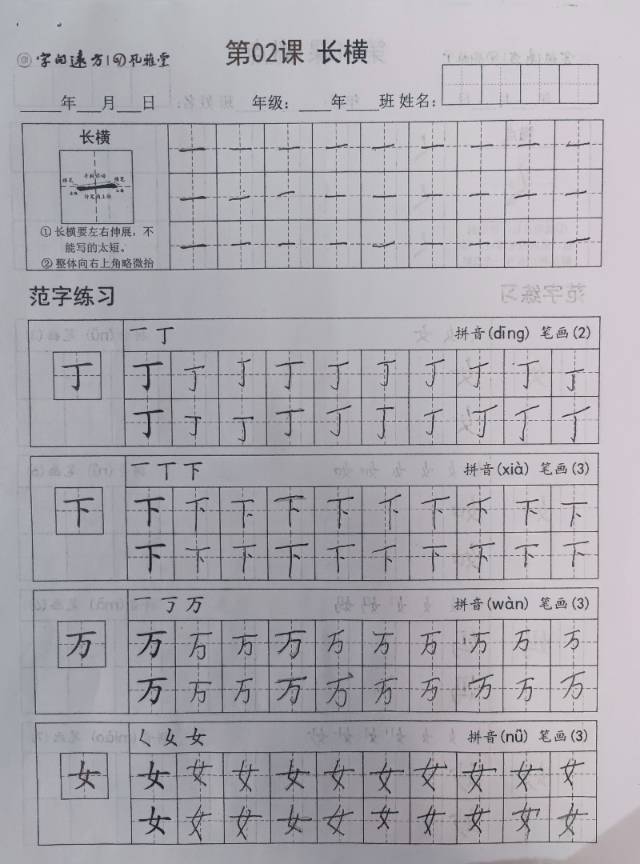 字的遠方 孔雅堂
第02课 长横
年 月 日 年级: 年 班 姓名:
长横
① 长横要左右伸展，不
能写的太短。
② 整体向右上角略微抬
一 一 一 一 一 一 一 一 一
一 一 一 一 一 一 一 一 一
一 一 一 一 一 一 一 一 一
范字练习
一 丁 拼音(dīng) 笔画(2)
丁 丁 丁 丁 丁 丁 丁 丁 丁 丁 丁
丁 丁 丁 丁 丁 丁 丁 丁 丁 丁
一 丁 下 拼音(xià) 笔画(3)
下 下 下 下 下 下 下 下 下 下 下
下 下 下 下 下 下 下 下 下 下
一 丆 万 拼音(wàn) 笔画(3)
万 万 万 万 万 万 万 万 万 万 万
万 万 万 万 万 万 万 万 万 万
く 女 女 拼音(nǚ) 笔画(3)
女 女 女 女 女 女 女 女 女 女 女
女 女 女 女 女 女 女 女 女 女